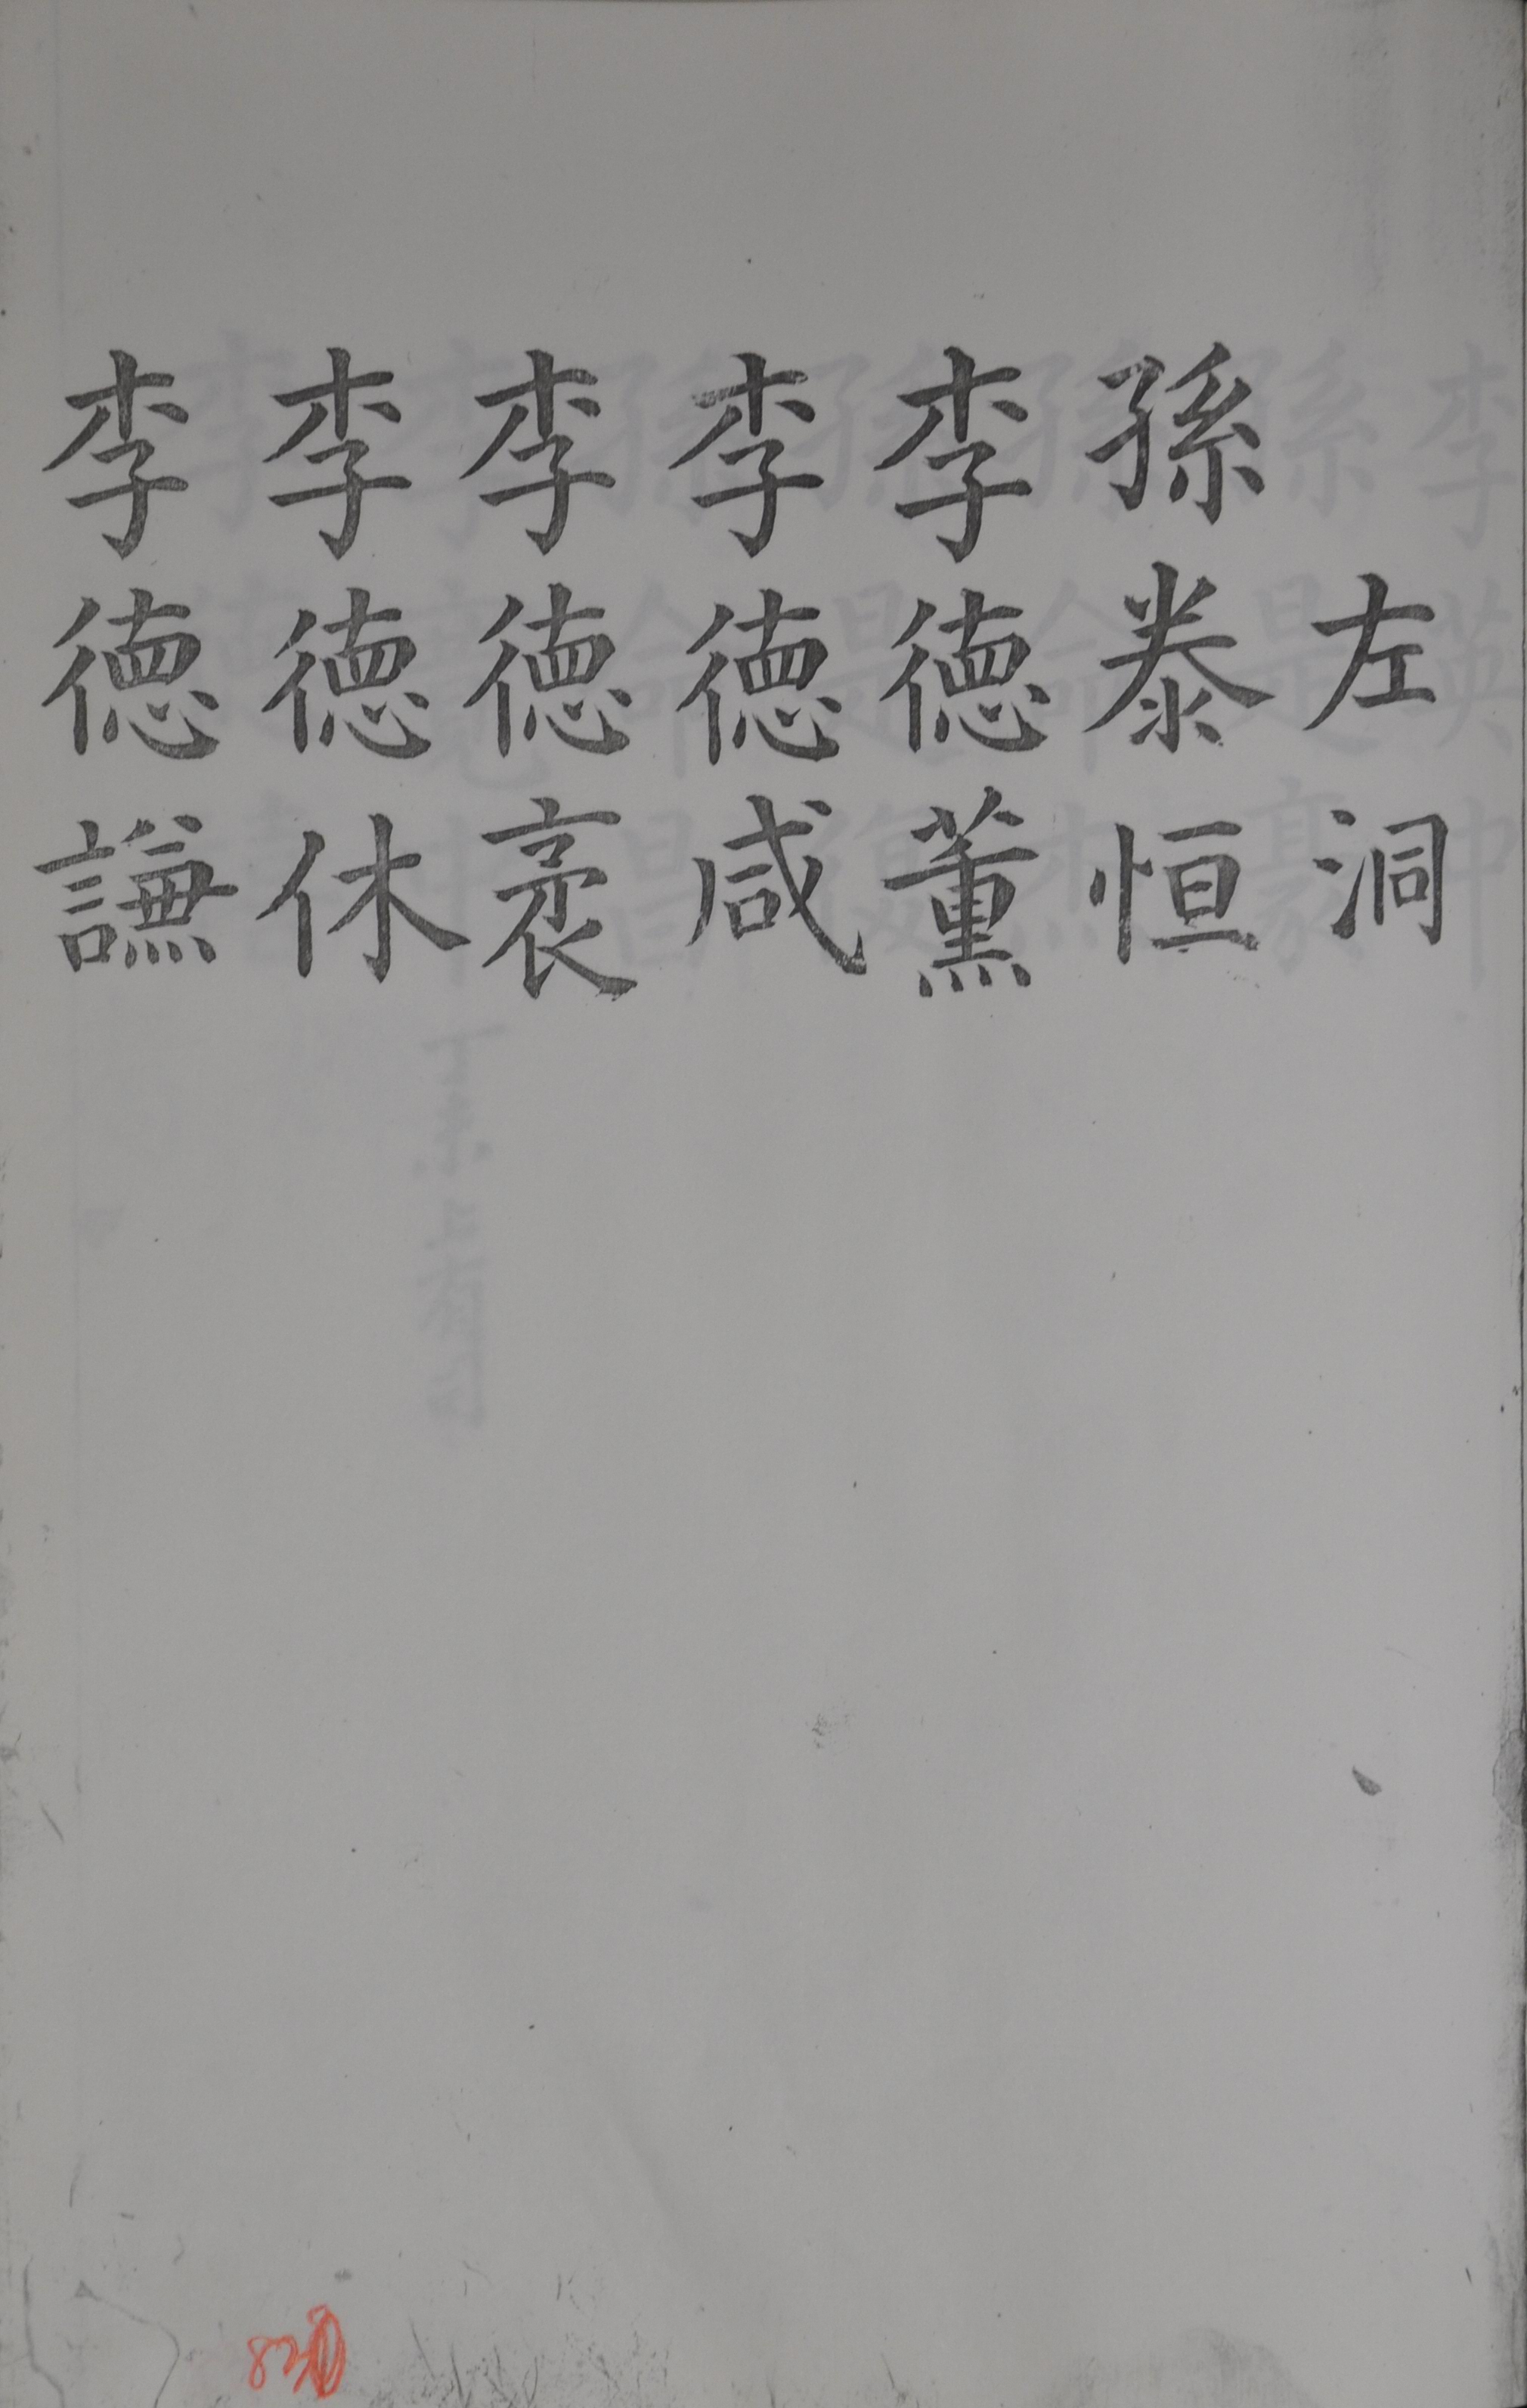 左洞
孫泰恒
李德薰
李德咸
李德裒
李德休
李德謙